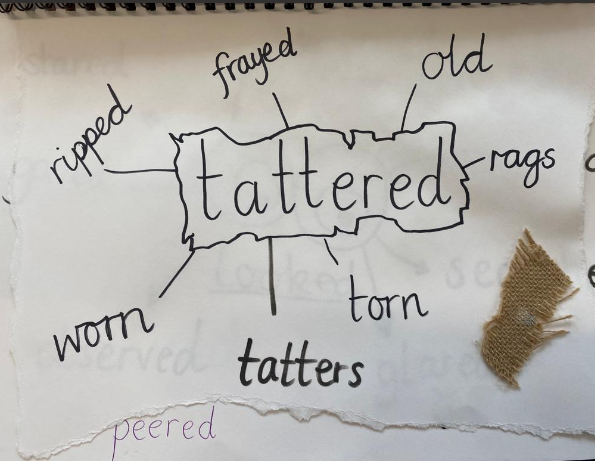 frayed
old
ripped
tattered
rags
worn
torn
tatters
peered